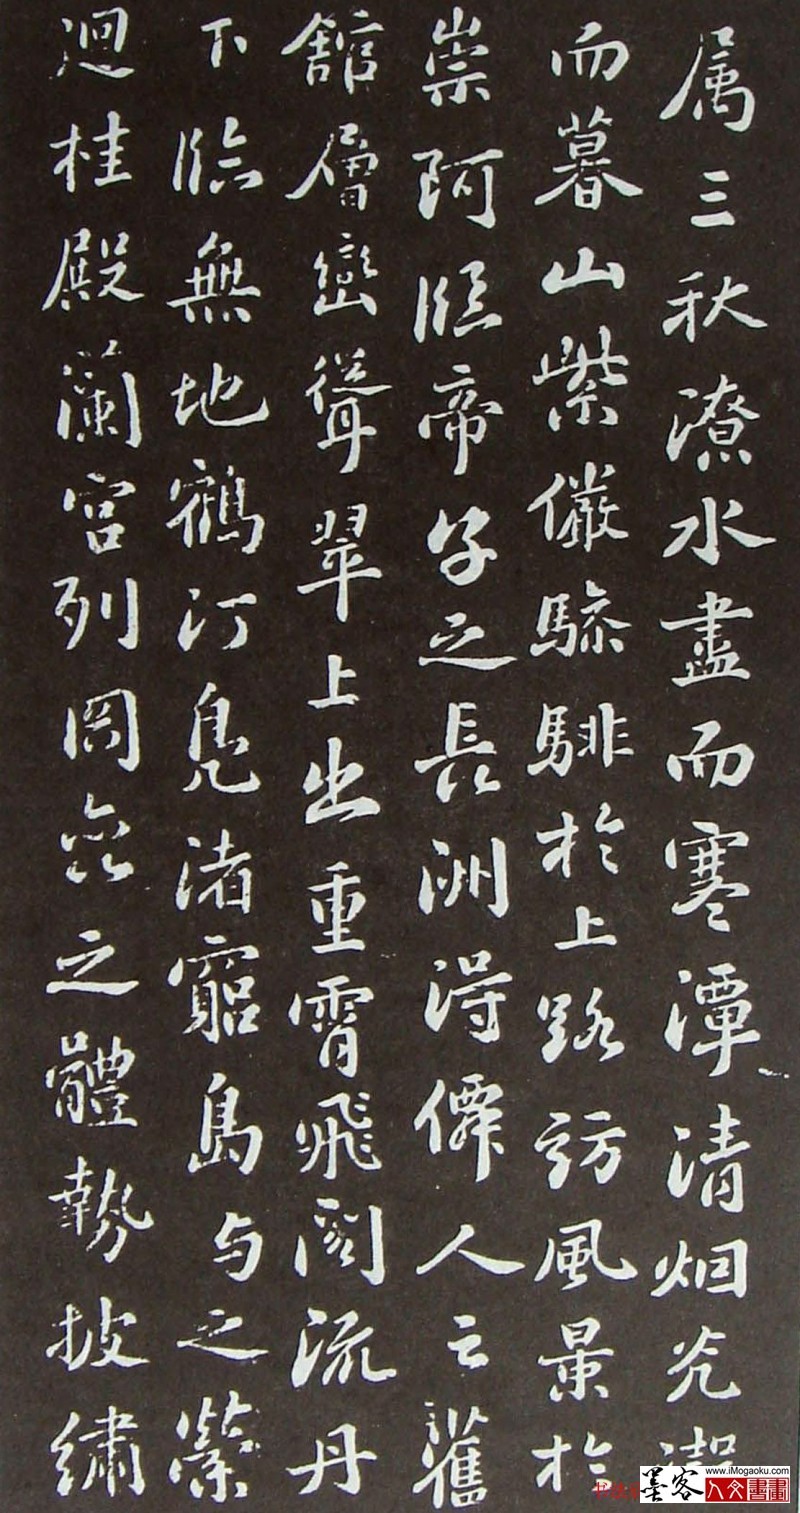 属三秋潦水盡而寒潭清烟光凝
而暮山紫儼驂騑於上路訪風景於
崇阿臨帝子之長洲得僊人之舊
舘層巒聳翠上出重霄飛閣流丹
下臨無地鶴汀鳧渚窮島与之縈
迴桂殿蘭宮列岡巒之體勢披繡
墨客
www.iMogaoku.com
人文書畫